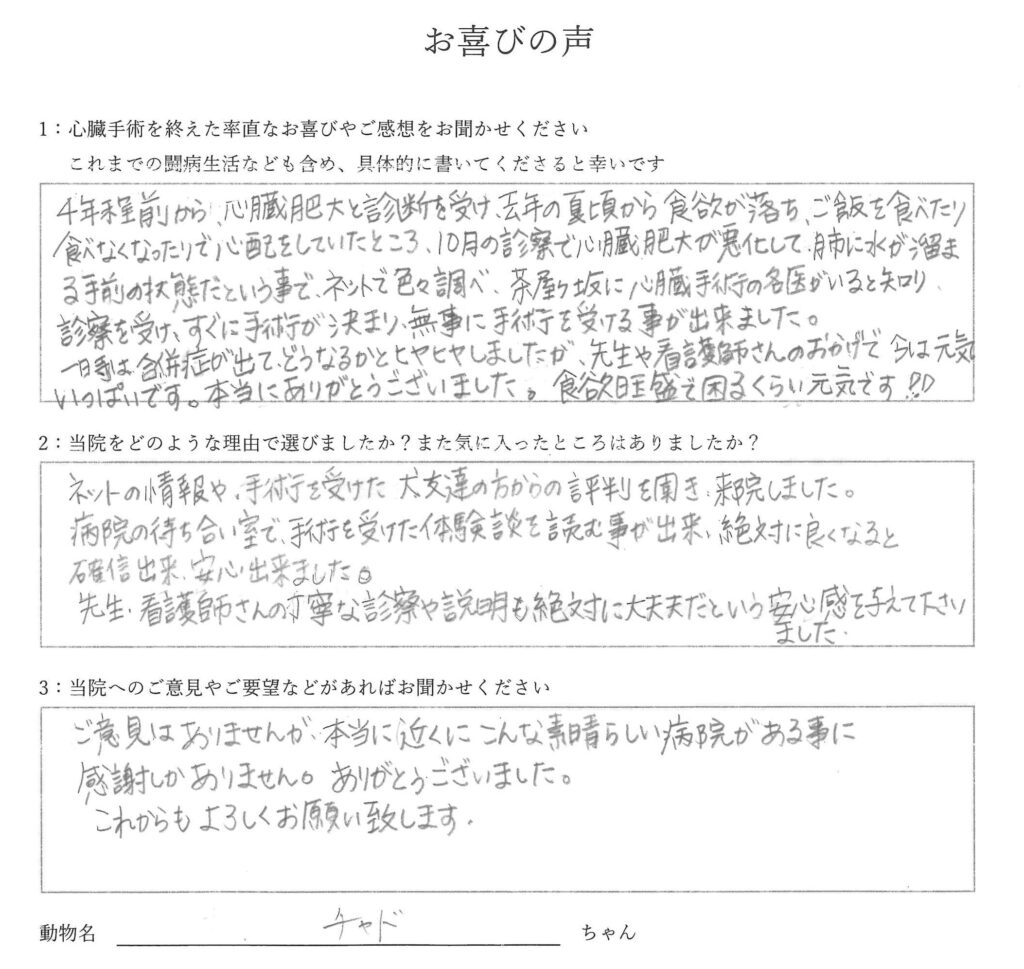 お喜びの声
1：心臓手術を終えた率直なお喜びやご感想をお聞かせください
これまでの闘病生活なども含め、具体的に書いてくださると幸いです
4年程前から、心臓肥大と診断を受け、去年の夏頃から食欲が落ち、ご飯を食べたり
食べなくなったりで心配をしていたところ、10月の診察で心臓肥大が悪化して、肺に水が溜ま
る手前の状態だという事で、ネットで色々調べ、茶屋ヶ坂に心臓手術の名医がいると知り、
診察を受け、すぐに手術が決まり、無事に手術を受ける事が出来ました。
一時は合併症が出て、どうなるかとヒヤヒヤしましたが、先生や看護師さんのおかげで今は元気
いっぱいです。本当にありがとうございました。食欲旺盛で困るくらい元気です!!
2：当院をどのような理由で選びましたか？また気に入ったところはありましたか？
ネットの情報や、手術を受けた犬友達の方からの評判を聞き、来院しました。
病院の待ち合い室で、手術を受けた体験談を読む事が出来、絶対に良くなると
確信出来、安心出来ました。
先生、看護師さんの丁寧な診察や説明も絶対に大丈夫だという安心感を与えて下さい
ました.
3：当院へのご意見やご要望などがあればお聞かせください
ご意見はありませんが、本当に近くにこんな素晴らしい病院がある事に
感謝しかありません。ありがとうございました。
これからもよろしくお願い致します.
動物名 チャド ちゃん